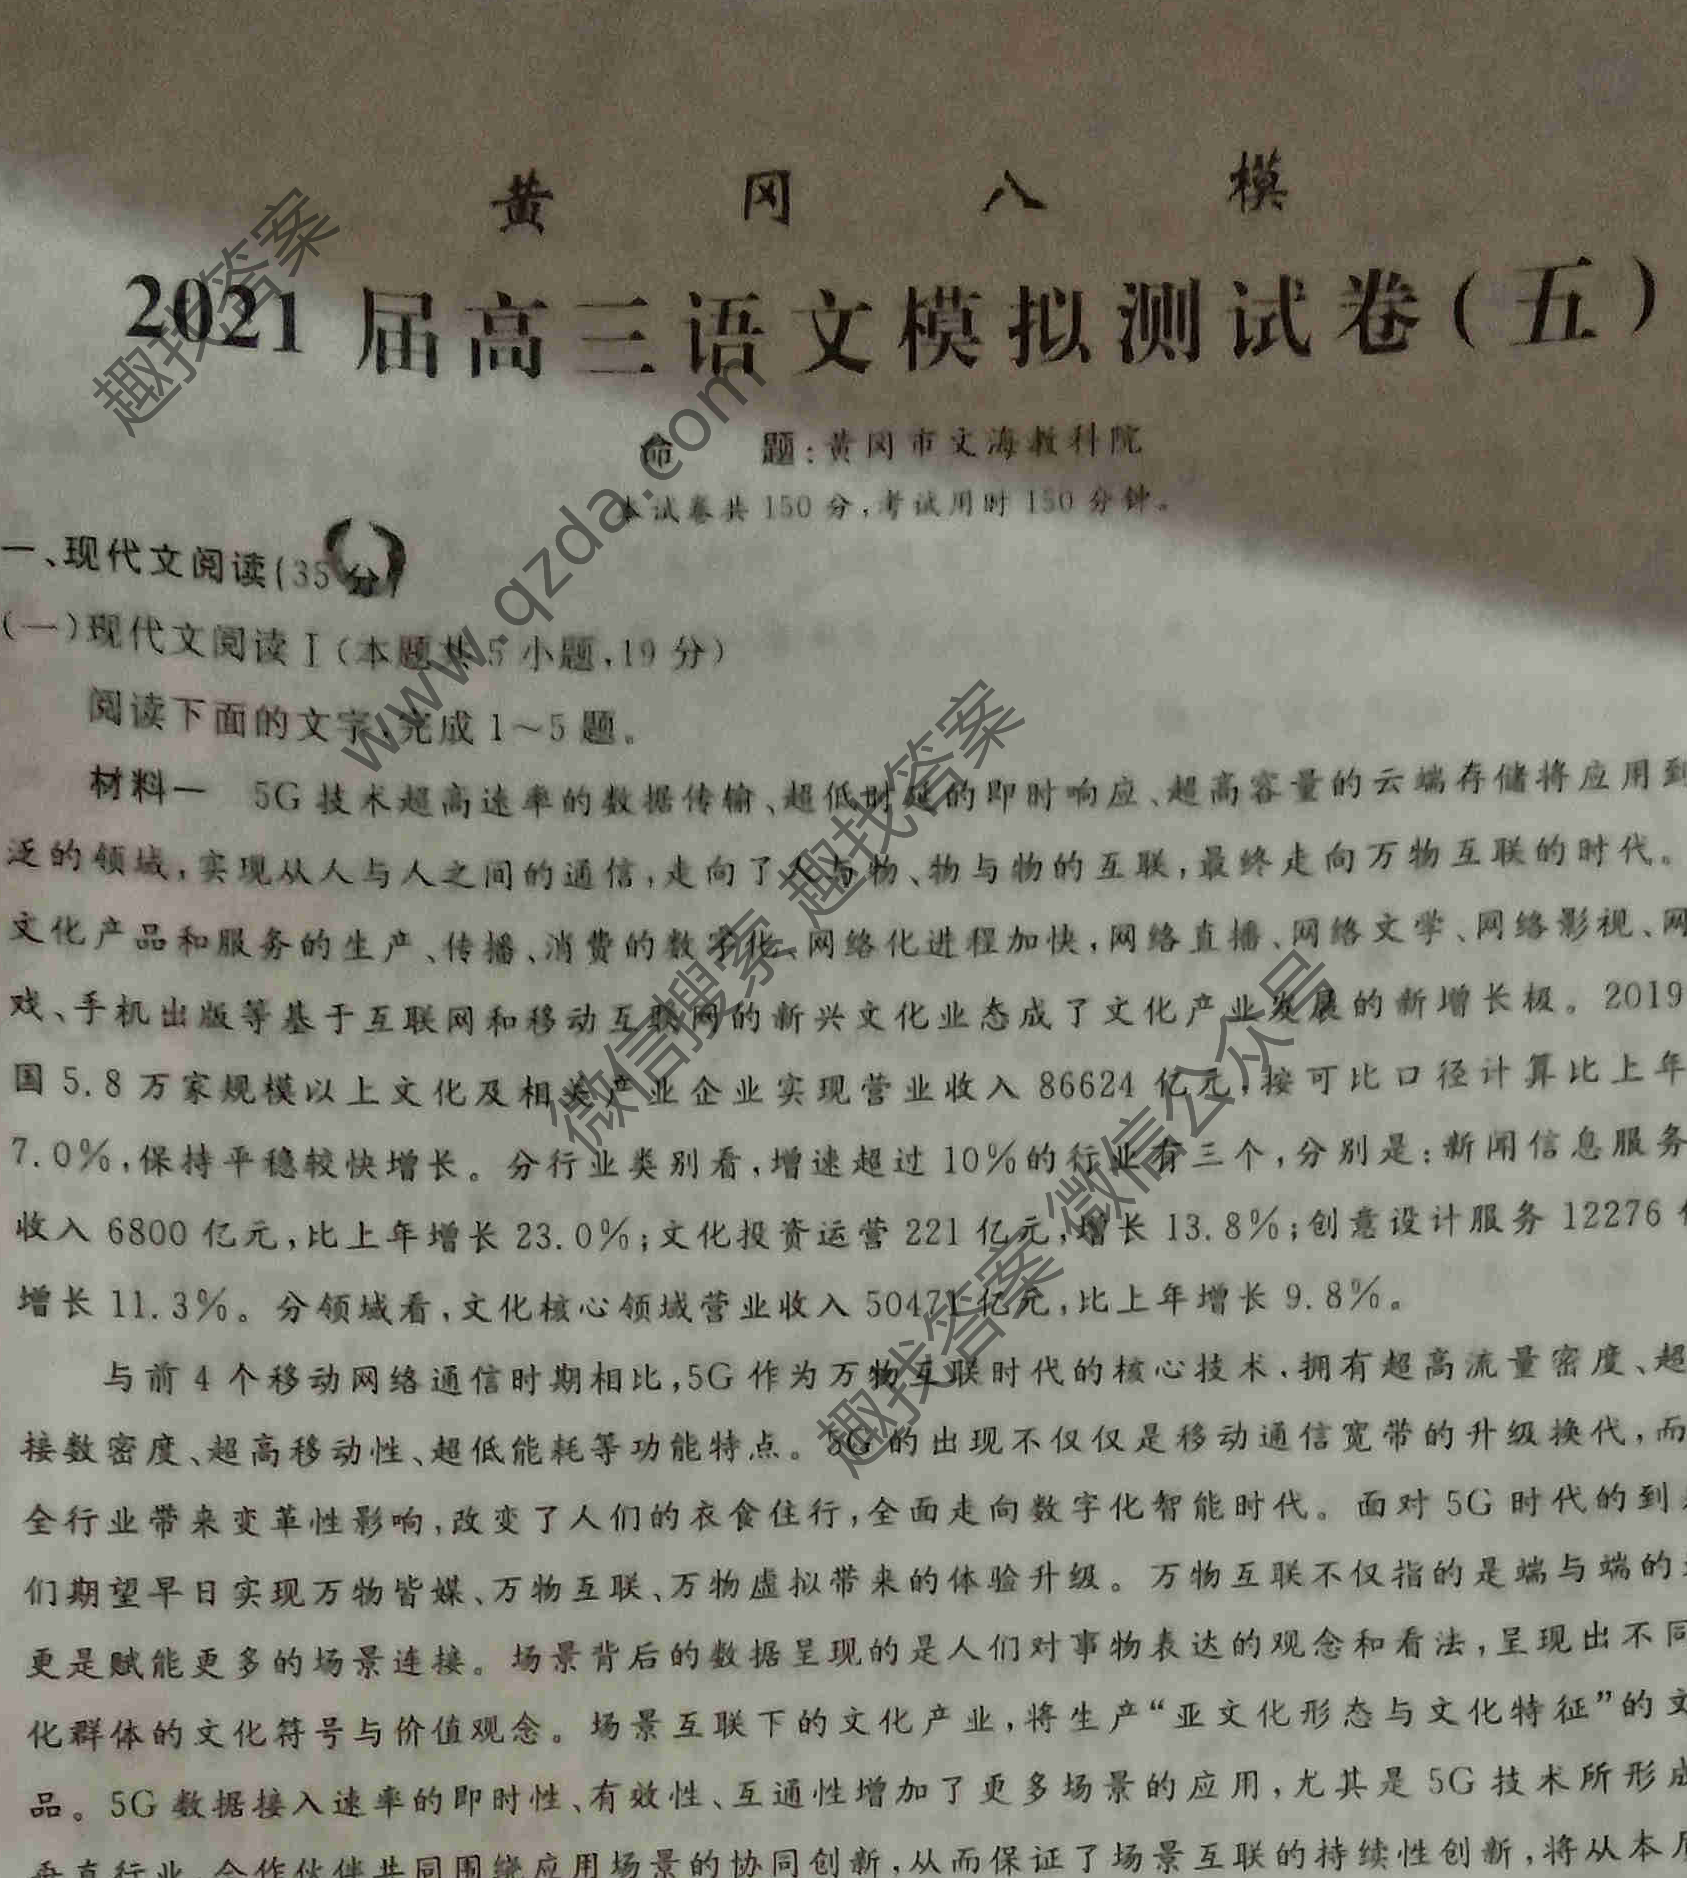 黄冈八模
2021届高三语文模拟测试卷(五)
命 题:黄冈市文海教科院
本试卷共150分,考试用时150分钟。
一、现代文阅读(35分)
(一)现代文阅读Ⅰ(本题共5小题,19分)
阅读下面的文字,完成1~5题。
材料一 5G技术超高速率的数据传输、超低时延的即时响应、超高容量的云端存储将应用到
泛的领域,实现从人与人之间的通信,走向了人与物、物与物的互联,最终走向万物互联的时代。
文化产品和服务的生产、传播、消费的数字化、网络化进程加快,网络直播、网络文学、网络影视、网
戏、手机出版等基于互联网和移动互联网的新兴文化业态成了文化产业发展的新增长极。2019
国5.8万家规模以上文化及相关产业企业实现营业收入86624亿元,按可比口径计算比上年
7.0%,保持平稳较快增长。分行业类别看,增速超过10%的行业有三个,分别是:新闻信息服务
收入6800亿元,比上年增长23.0%;文化投资运营221亿元,增长13.8%;创意设计服务12276
增长11.3%。分领域看,文化核心领域营业收入50471亿元,比上年增长9.8%。
与前4个移动网络通信时期相比,5G作为万物互联时代的核心技术,拥有超高流量密度、超
接数密度、超高移动性、超低能耗等功能特点。5G的出现不仅仅是移动通信宽带的升级换代,而
全行业带来变革性影响,改变了人们的衣食住行,全面走向数字化智能时代。面对5G时代的到
们期望早日实现万物皆媒、万物互联、万物虚拟带来的体验升级。万物互联不仅指的是端与端的
更是赋能更多的场景连接。场景背后的数据呈现的是人们对事物表达的观念和看法,呈现出不同
化群体的文化符号与价值观念。场景互联下的文化产业,将生产“亚文化形态与文化特征”的文
品。5G数据接入速率的即时性、有效性、互通性增加了更多场景的应用,尤其是5G技术所形成
垂直行业、合作伙伴共同围绕应用场景的协同创新,从而保证了场景互联的持续性创新,将从本
趣找答案
www.qzda.com
微信搜索 趣找答案
趣找答案 微信公众号